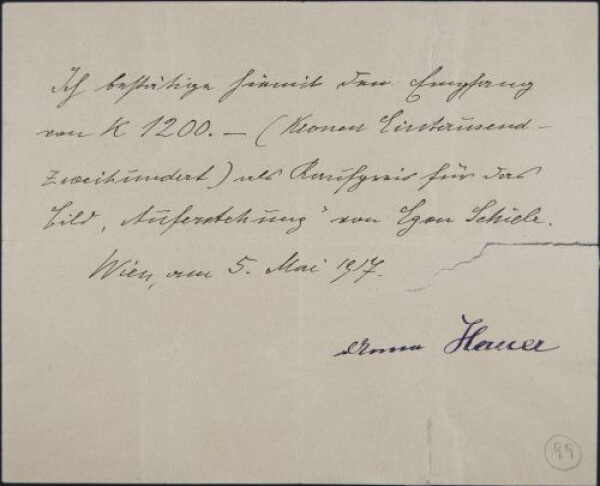 Ich bestätige hiemit den Empfang
von K 1200.— (Kronen Eintausend-
zweihundert) als Kaufpreis für das
Bild „Auferstehung" von Egon Schiele.
Wien, am 5. Mai 1917.
Hauer
99